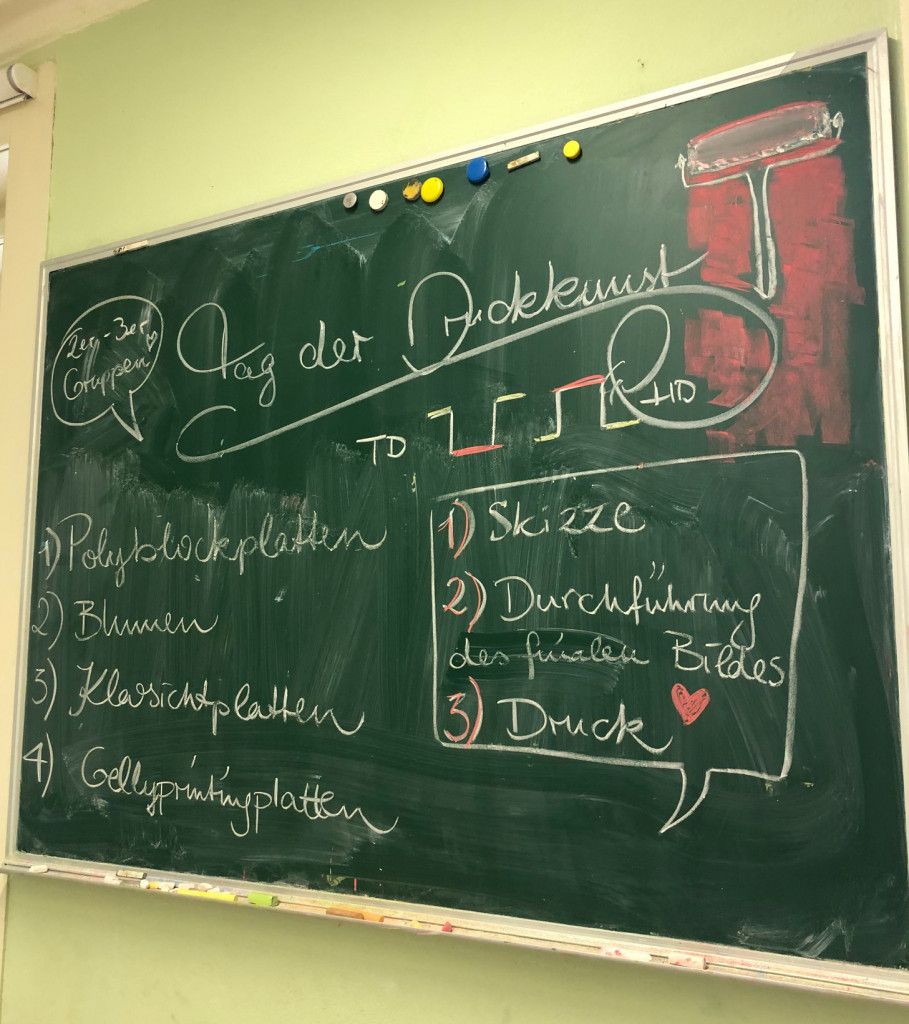 2er-3er
Gruppen
Tag der Druckkunst
TD
HD
1) Polyblockplatten
2) Blumen
3) Klarsichtplatten
4) Gellyprintingplatten
1) Skizze
2) Durchführung
des finalen Bildes
3) Druck